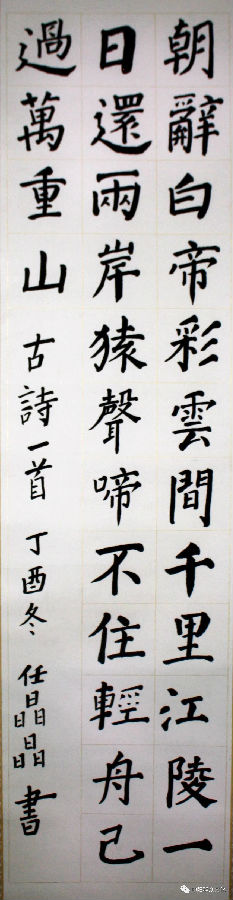 朝辭白帝彩雲間千里江陵一
日還兩岸猿聲啼不住輕舟已
過萬重山 古詩一首 丁酉冬 任晶晶書